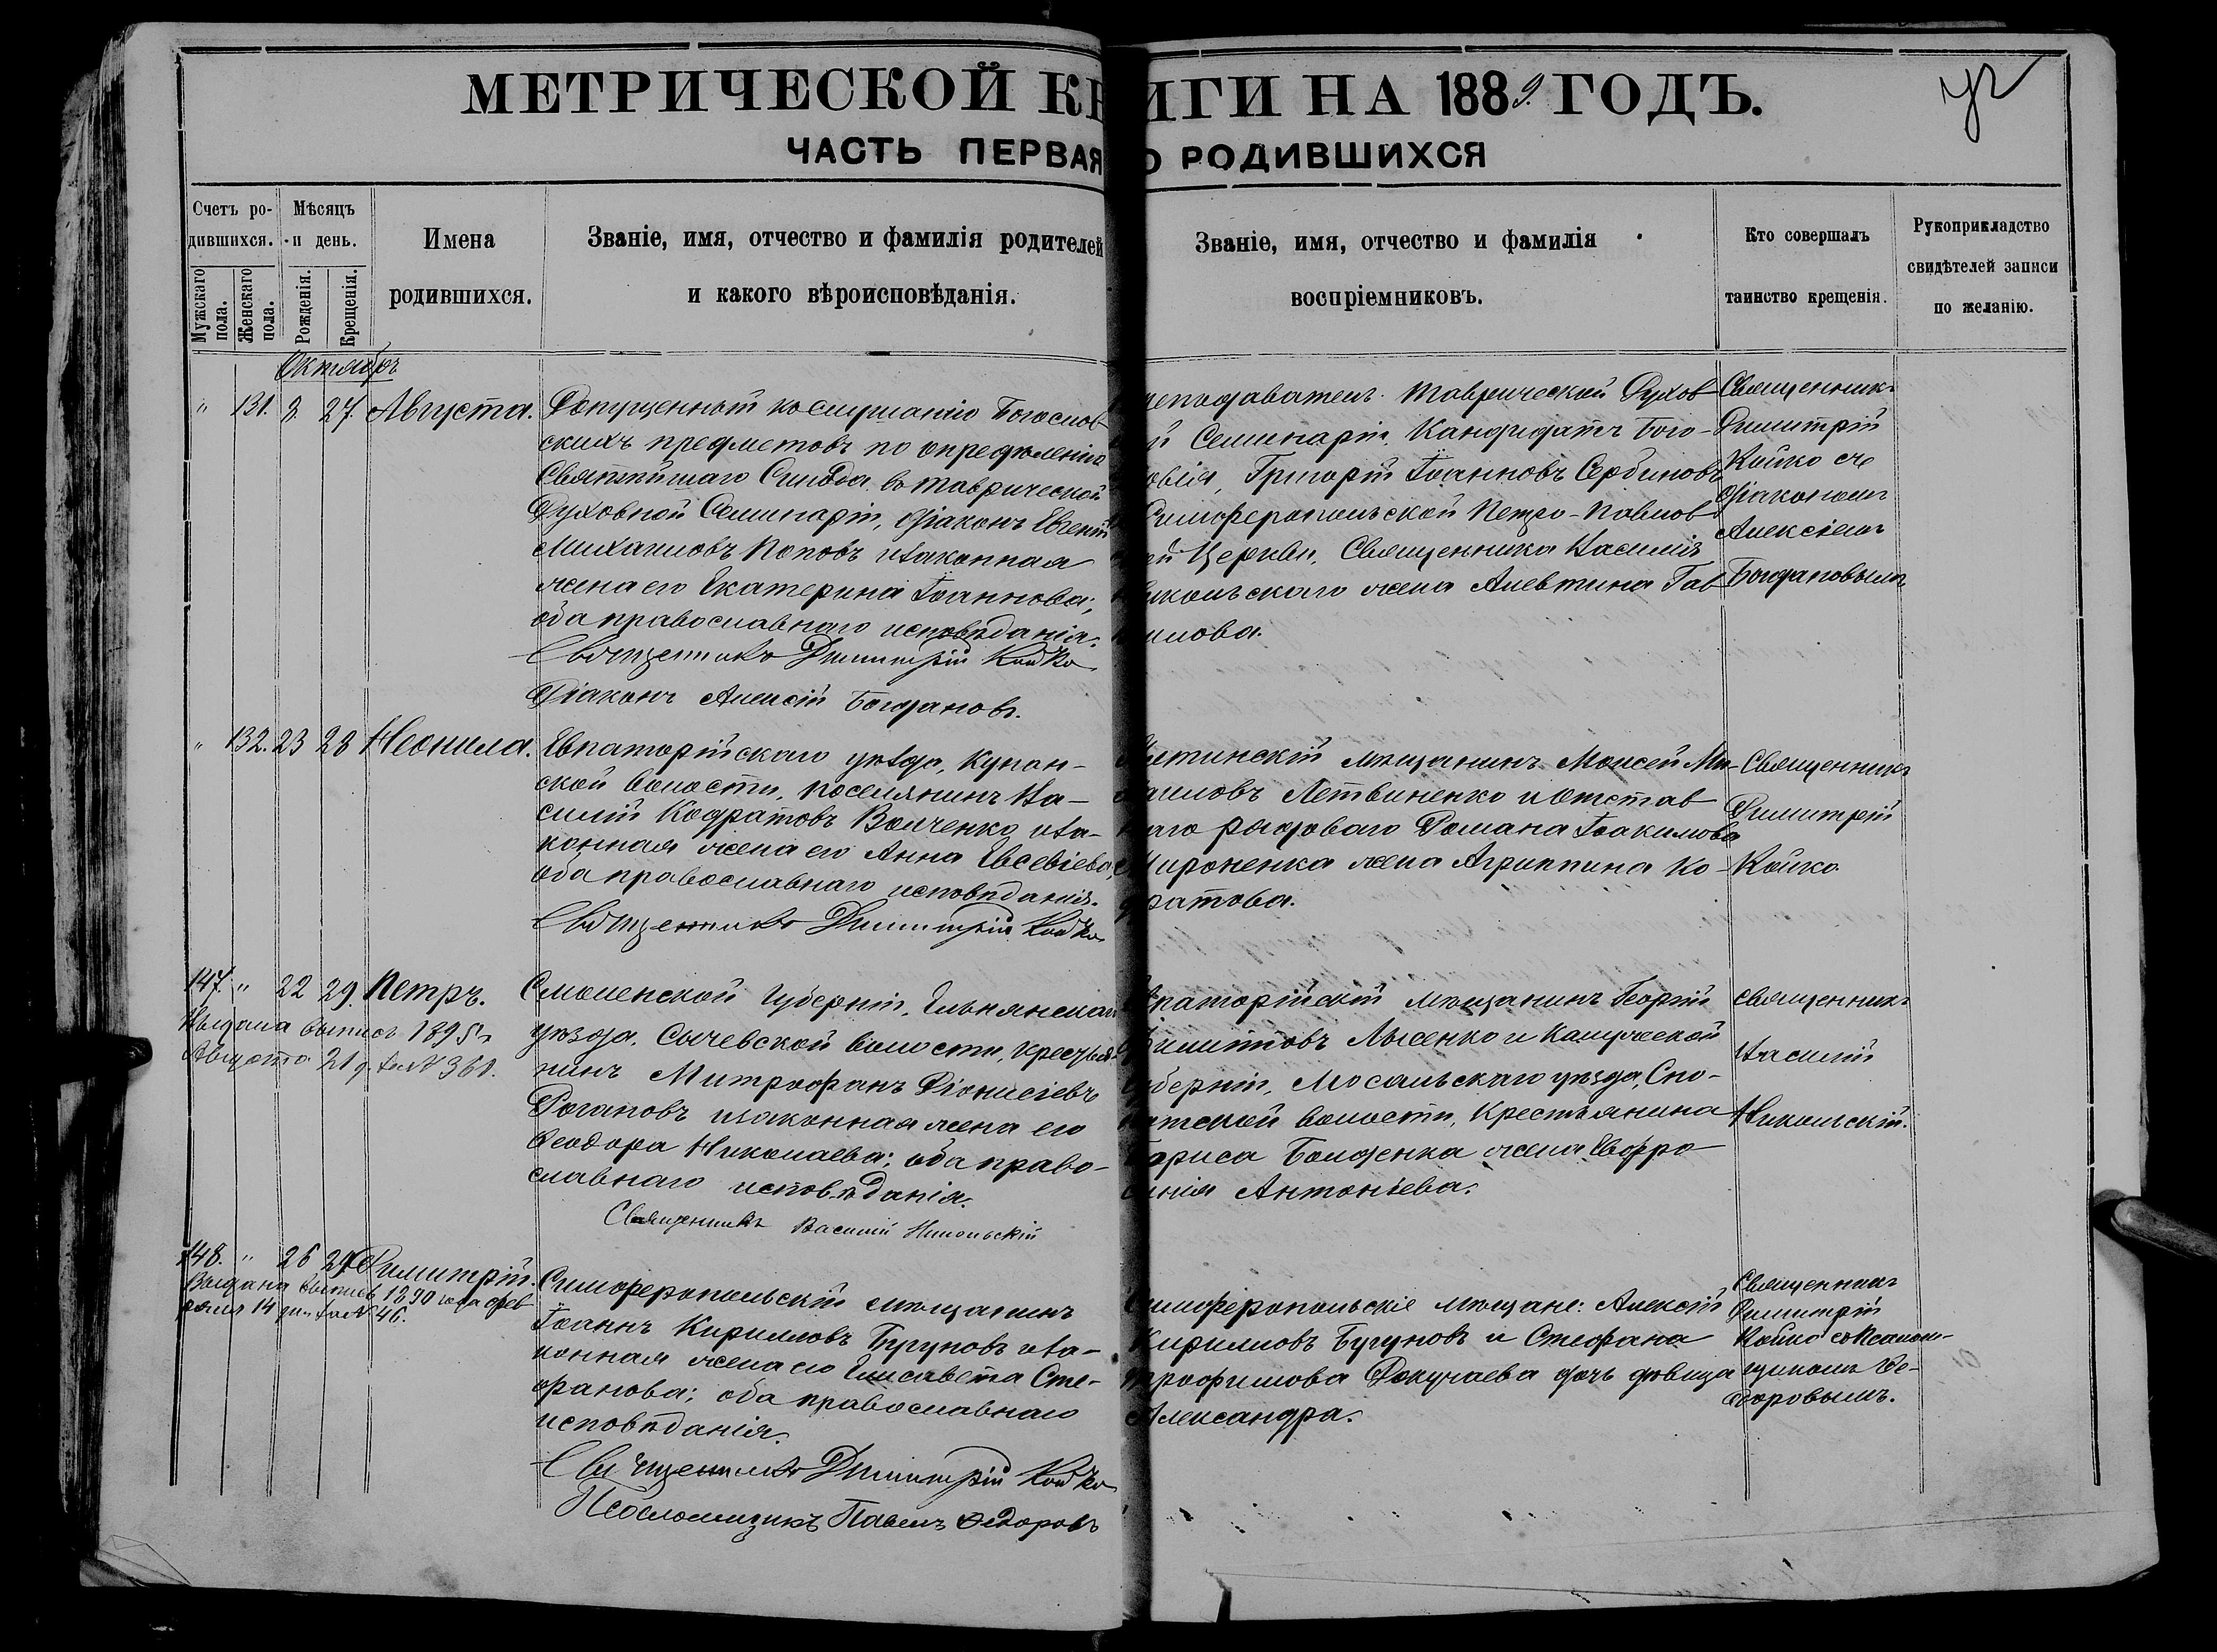 МЕТРИЧЕСКОЙ КНИГИ НА 1889 ГОДЪ.
ЧАСТЬ ПЕРВАЯ О РОДИВШИХСЯ
Счетъ ро-
дившихся.
Мѣсяцъ
и день.
Мужскаго пола.
Женскаго пола.
Рожденія.
Крещенія.
Имена
родившихся.
Званіе, имя, отчество и фамилія родителей
и какого вѣроисповѣданія.
Званіе, имя, отчество и фамилія
воспріемниковъ.
Кто совершалъ
таинство крещенія.
Рукоприкладство
свидѣтелей записи
по желанію.
Октябрь
" 131. 3 27. Августа.
Допущенный ко слушанію Богослов-
скихъ предметовъ по опредѣленію
Святѣйшаго Синода въ Таврической
Духовной Семинаріи, Діаконъ Евгеній
Михаиловъ Поповъ и законная
жена его Екатерина Іоаннова;
оба православнаго исповѣданія.
Священникъ Димитрій Койко
Діаконъ Алексій Богдановъ.
еподаватель Таврической Духов
й Семинаріи, Кандидатъ Бого-
овія, Григорій Іоанновъ Сербиновъ
Симферопольской Петро-Павлов
ой Церкви, Священника Василія
икольскаго жена Алевтина Гав
илова.
Священникъ
Димитрій
Койко съ
Діакономъ
Алексіемъ
Богдановымъ
" 132. 23 28 Неонила.
Евпаторійскаго уѣзда, Курман-
ской волости, поселянинъ Ва-
силій Кодратовъ Волченко и за-
конная жена его Анна Евсевіева,
оба православнаго исповѣданія.
Священникъ Димитрій Койко
мѣщанинъ Моисей Ми-
аиловъ Летвиненко и Отстав
наго рядоваго Романа Іоакимова
Мироненка жена Агриппина Ко-
дратова.
Священникъ
Димитрій
Койко.
147. " 22 29. Петръ.
Выдана выпись 1895 г.
Августа 21 д. за № 360.
Смоленской губерніи, Ельнянскаго
уѣзда, Сычевской волости, крестья-
нинъ Митрофанъ Діонисіевъ
Рогановъ и законная жена его
Феодора Николаева; оба право-
славнаго исповѣданія.
Священникъ Василій Никольскій
Евпаторійскій мѣщанинъ Георгій
Филипповъ Лысенко и Калужской
губерніи, Мосальскаго уѣзда, Спо-
волости, Крестьянина
Бориса жена Евфро-
синія Антоніева.
Священникъ
Василій
Никольскій.
148. " 26 29 Димитрій.
Выдана выпись 1890 года фев
раля 14 дня за № 46.
Симферопольскій мѣщанинъ
Іоаннъ Кирилловъ Бугуновъ и за-
конная жена его Елисавета Сте-
фанова; оба православнаго
исповѣданія.
Священникъ Димитрій Койко
Псаломщикъ Павелъ Федоровъ
Симферопольскіе мѣщане: Алексій
Кирилловъ Бугуновъ и Стефана
Трофимова Докучаева дочь дѣвица
Александра.
Священникъ
Димитрій
Койко съ Псалом-
щикомъ Фе-
доровымъ.